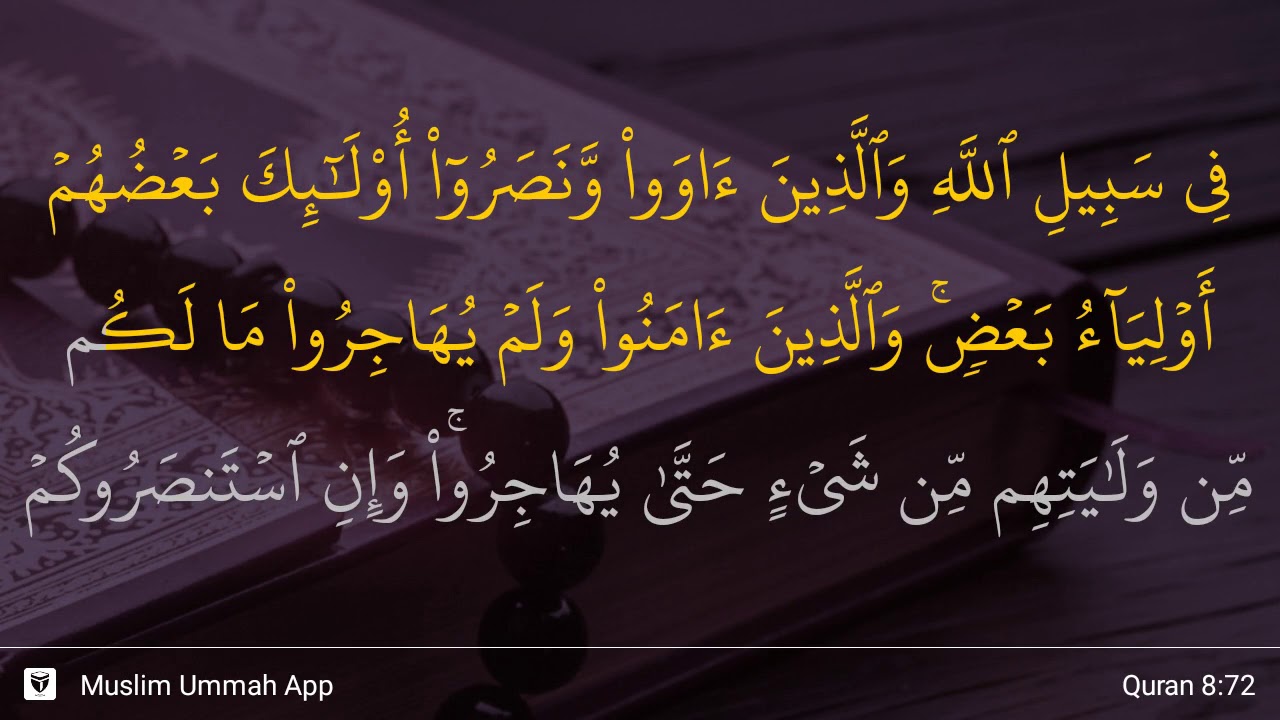 فِى سَبِيلِ ٱللَّهِ وَٱلَّذِينَ ءَاوَوا۟ وَّنَصَرُوٓا۟ أُو۟لَـٰٓئِكَ بَعْضُهُمْ
أَوْلِيَآءُ بَعْضٍۢ ۚ وَٱلَّذِينَ ءَامَنُوا۟ وَلَمْ يُهَاجِرُوا۟ مَا لَكُم
مِّن وَلَـٰيَتِهِم مِّن شَىْءٍ حَتَّىٰ يُهَاجِرُوا۟ ۚ وَإِنِ ٱسْتَنصَرُوكُمْ
Muslim Ummah App
Quran 8:72